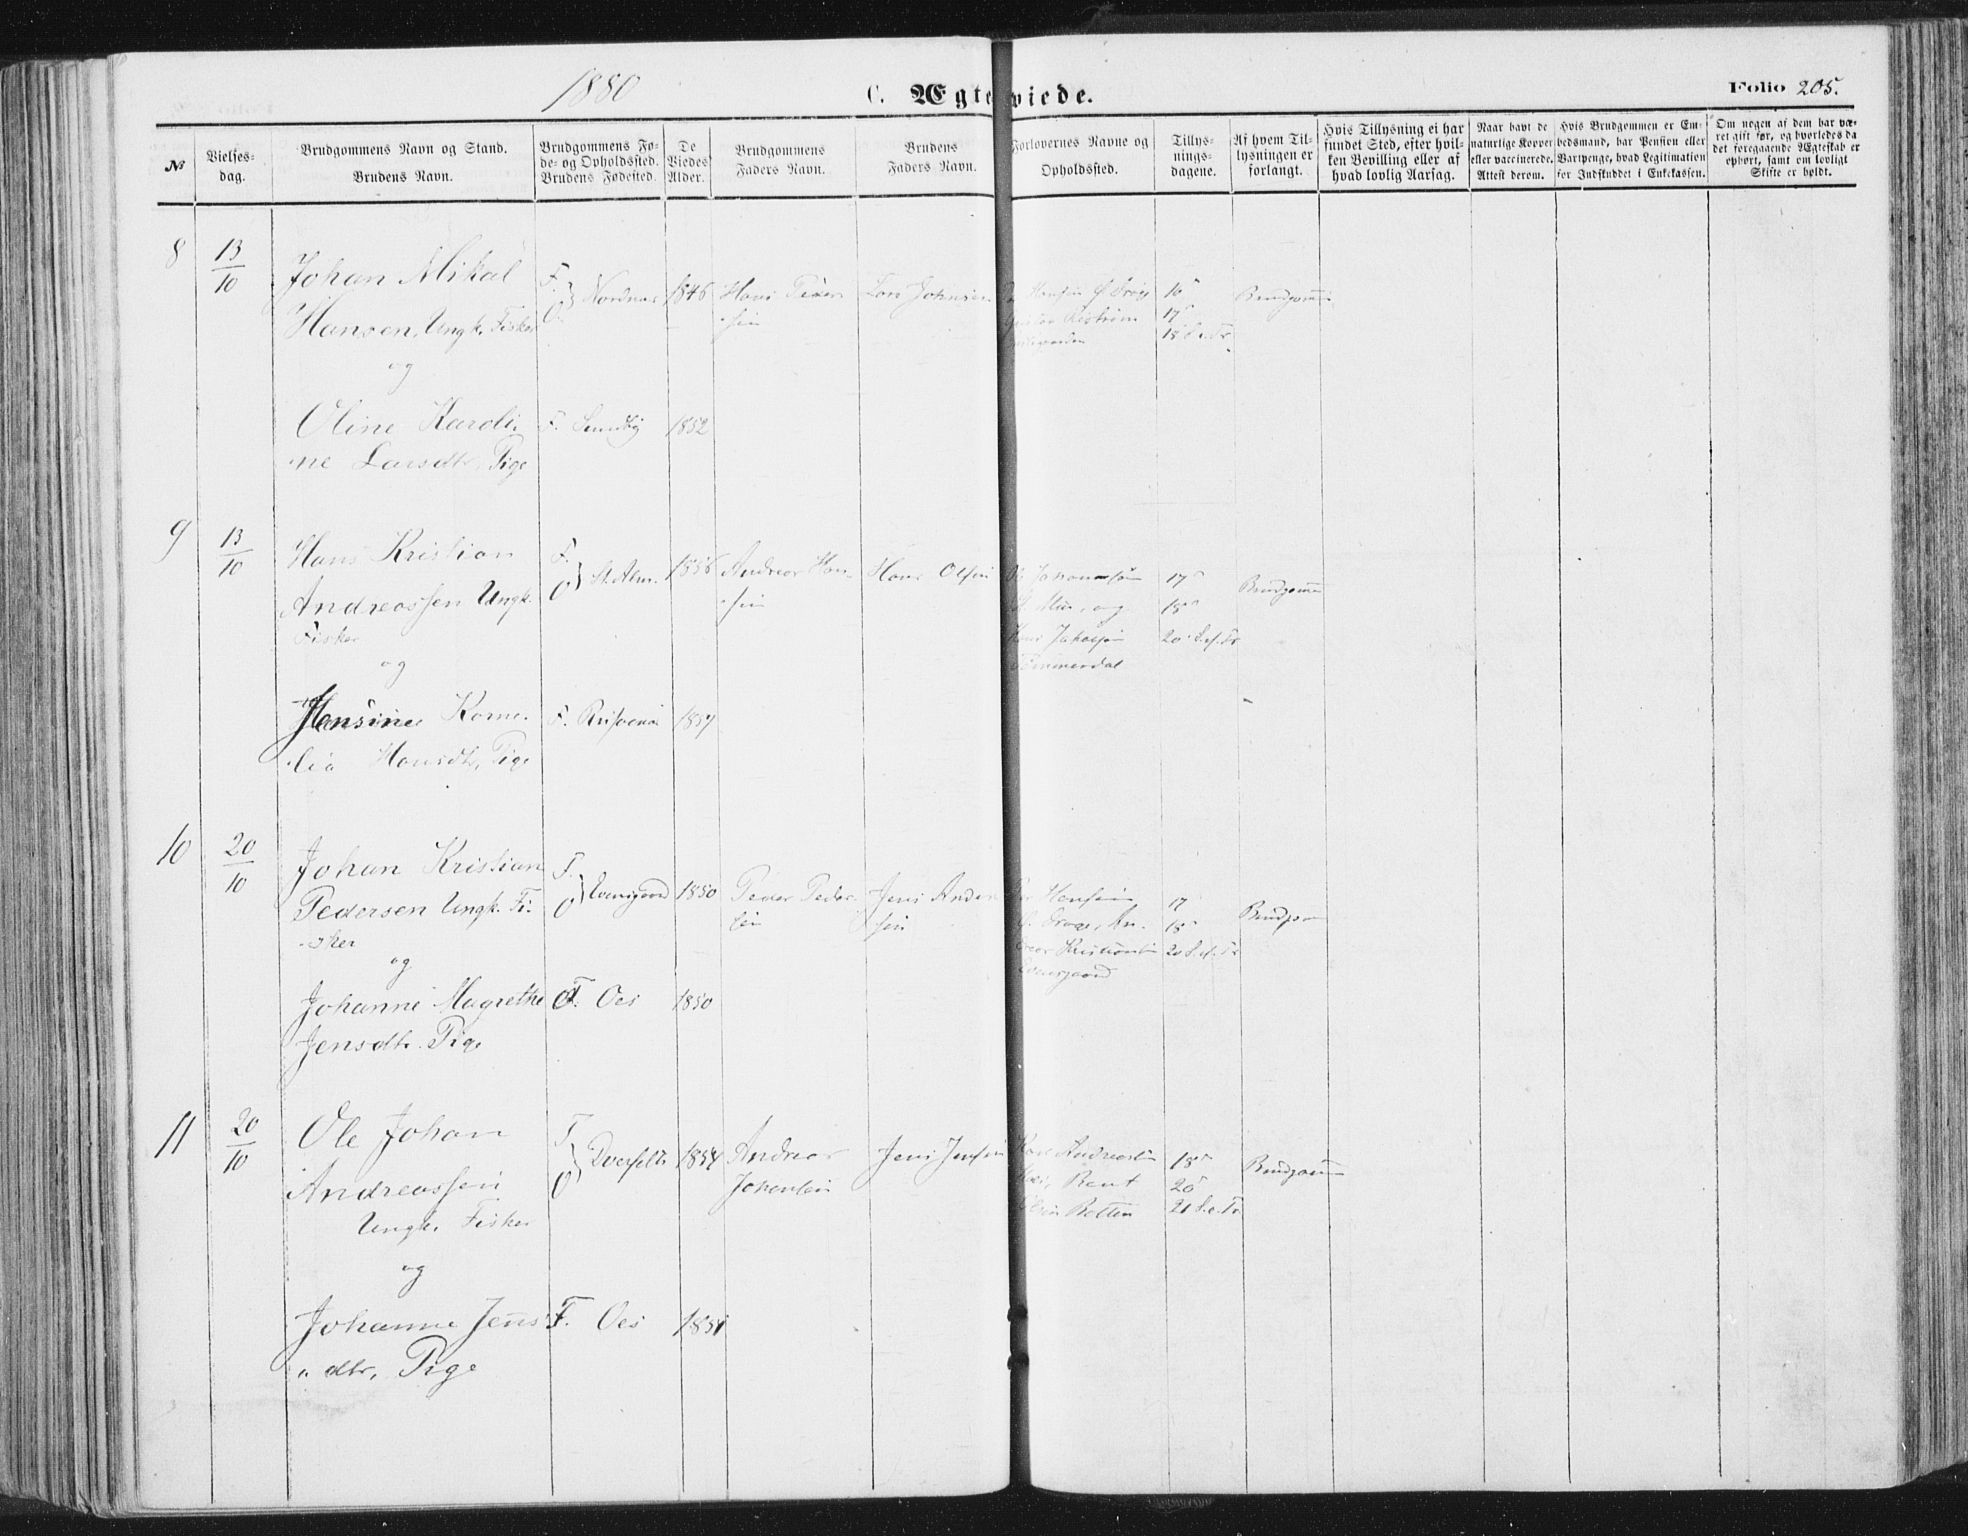 1880
C. Ægteviede.
Folio 205.
№
Vielses-
dag.
Brudgommens Navn og Stand.
Brudens Navn.
Brudgommens Fø-
de- og Opholdssted.
Brudens Fødested.
De
Viedes
Alder.
Brudgommens
Faders Navn.
Brudens
Faders Navn.
Forlovernes Navne og
Opholdssted.
Tillys-
nings-
dagene.
Af hvem Til-
lysningen er
forlangt.
Hvis Tillysning ei har
fundet Sted, efter hvil-
ken Bevilling eller af
hvad lovlig Aarsag.
Naar havt de
naturlige Kopper
eller vaccinerede.
Attest derom.
Hvis Brudgommen er Em-
bedsmand, har Pension eller
Vartpenge, hvad Legitimation
for Indskuddet i Enkekassen.
Om nogen af dem har væ-
ret gift før, og hvorledes da
det foregaaende Ægteskab er
ophørt, samt om lovligt
Skifte er holdt.
8
13
10
Johan Mikal
Hansen, Ungk. Fisker
og
Oline Karoli-
ne Larsdtr, Pige
F.
O.
Nordnæs
1846
Hans Peder-
sen
Lars Johnsen
16
17
18 S. e. Tr.
Brudgommen
F. Sundby
1852
9
13
10
Hans Kristian
Andreassen Ungk.
Fisker
og
Hansine Korne-
lia Hansdtr, Pige
F.
O
St. Alm.
Andreas Han-
sen
Hans Olsen
17
18
20 S. ef. Tr
Brudgommen
F.
1857
10
20
10
Johan Kristian
Pedersen Ungk. Fi-
sker
og
Johanne Magrethe
Jensdtr. Pige
F.
O
Evensgaard
1850
Peder Peder-
sen
Jens Ander
sen
17
18
20 S. ef. Tr
Brudgom
Evensgaard
F. Oes
1850
11
20
10
Ole Johan
Andreassen
Ungk. Fisker
og
Johanne Jens
dtr, Pige
F
O
Dverset
1854
Andreas
Johansen
Jens Jensen
Bent
Botten
18
20
21 S. e. Tr.
Brudgommen
F. Oes
1851